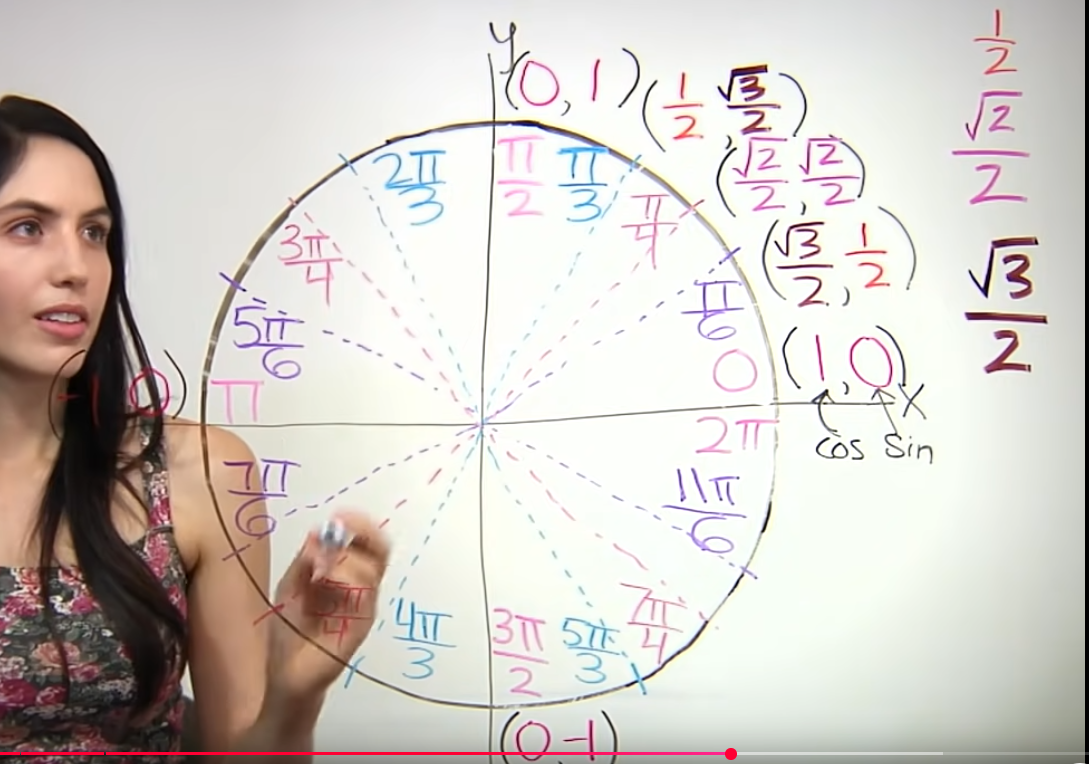 y
(0, 1)
(1/2, √3/2)
(√2/2, √2/2)
(√3/2, 1/2)
(1, 0)
x
cos sin
1/2
√2/2
√3/2
2π/3
π/2
π/3
3π/4
π/4
5π/6
π/6
(-1, 0)
π
0
2π
7π/6
11π/6
5π/4
4π/3
3π/2
5π/3
7π/4
(0, -1)